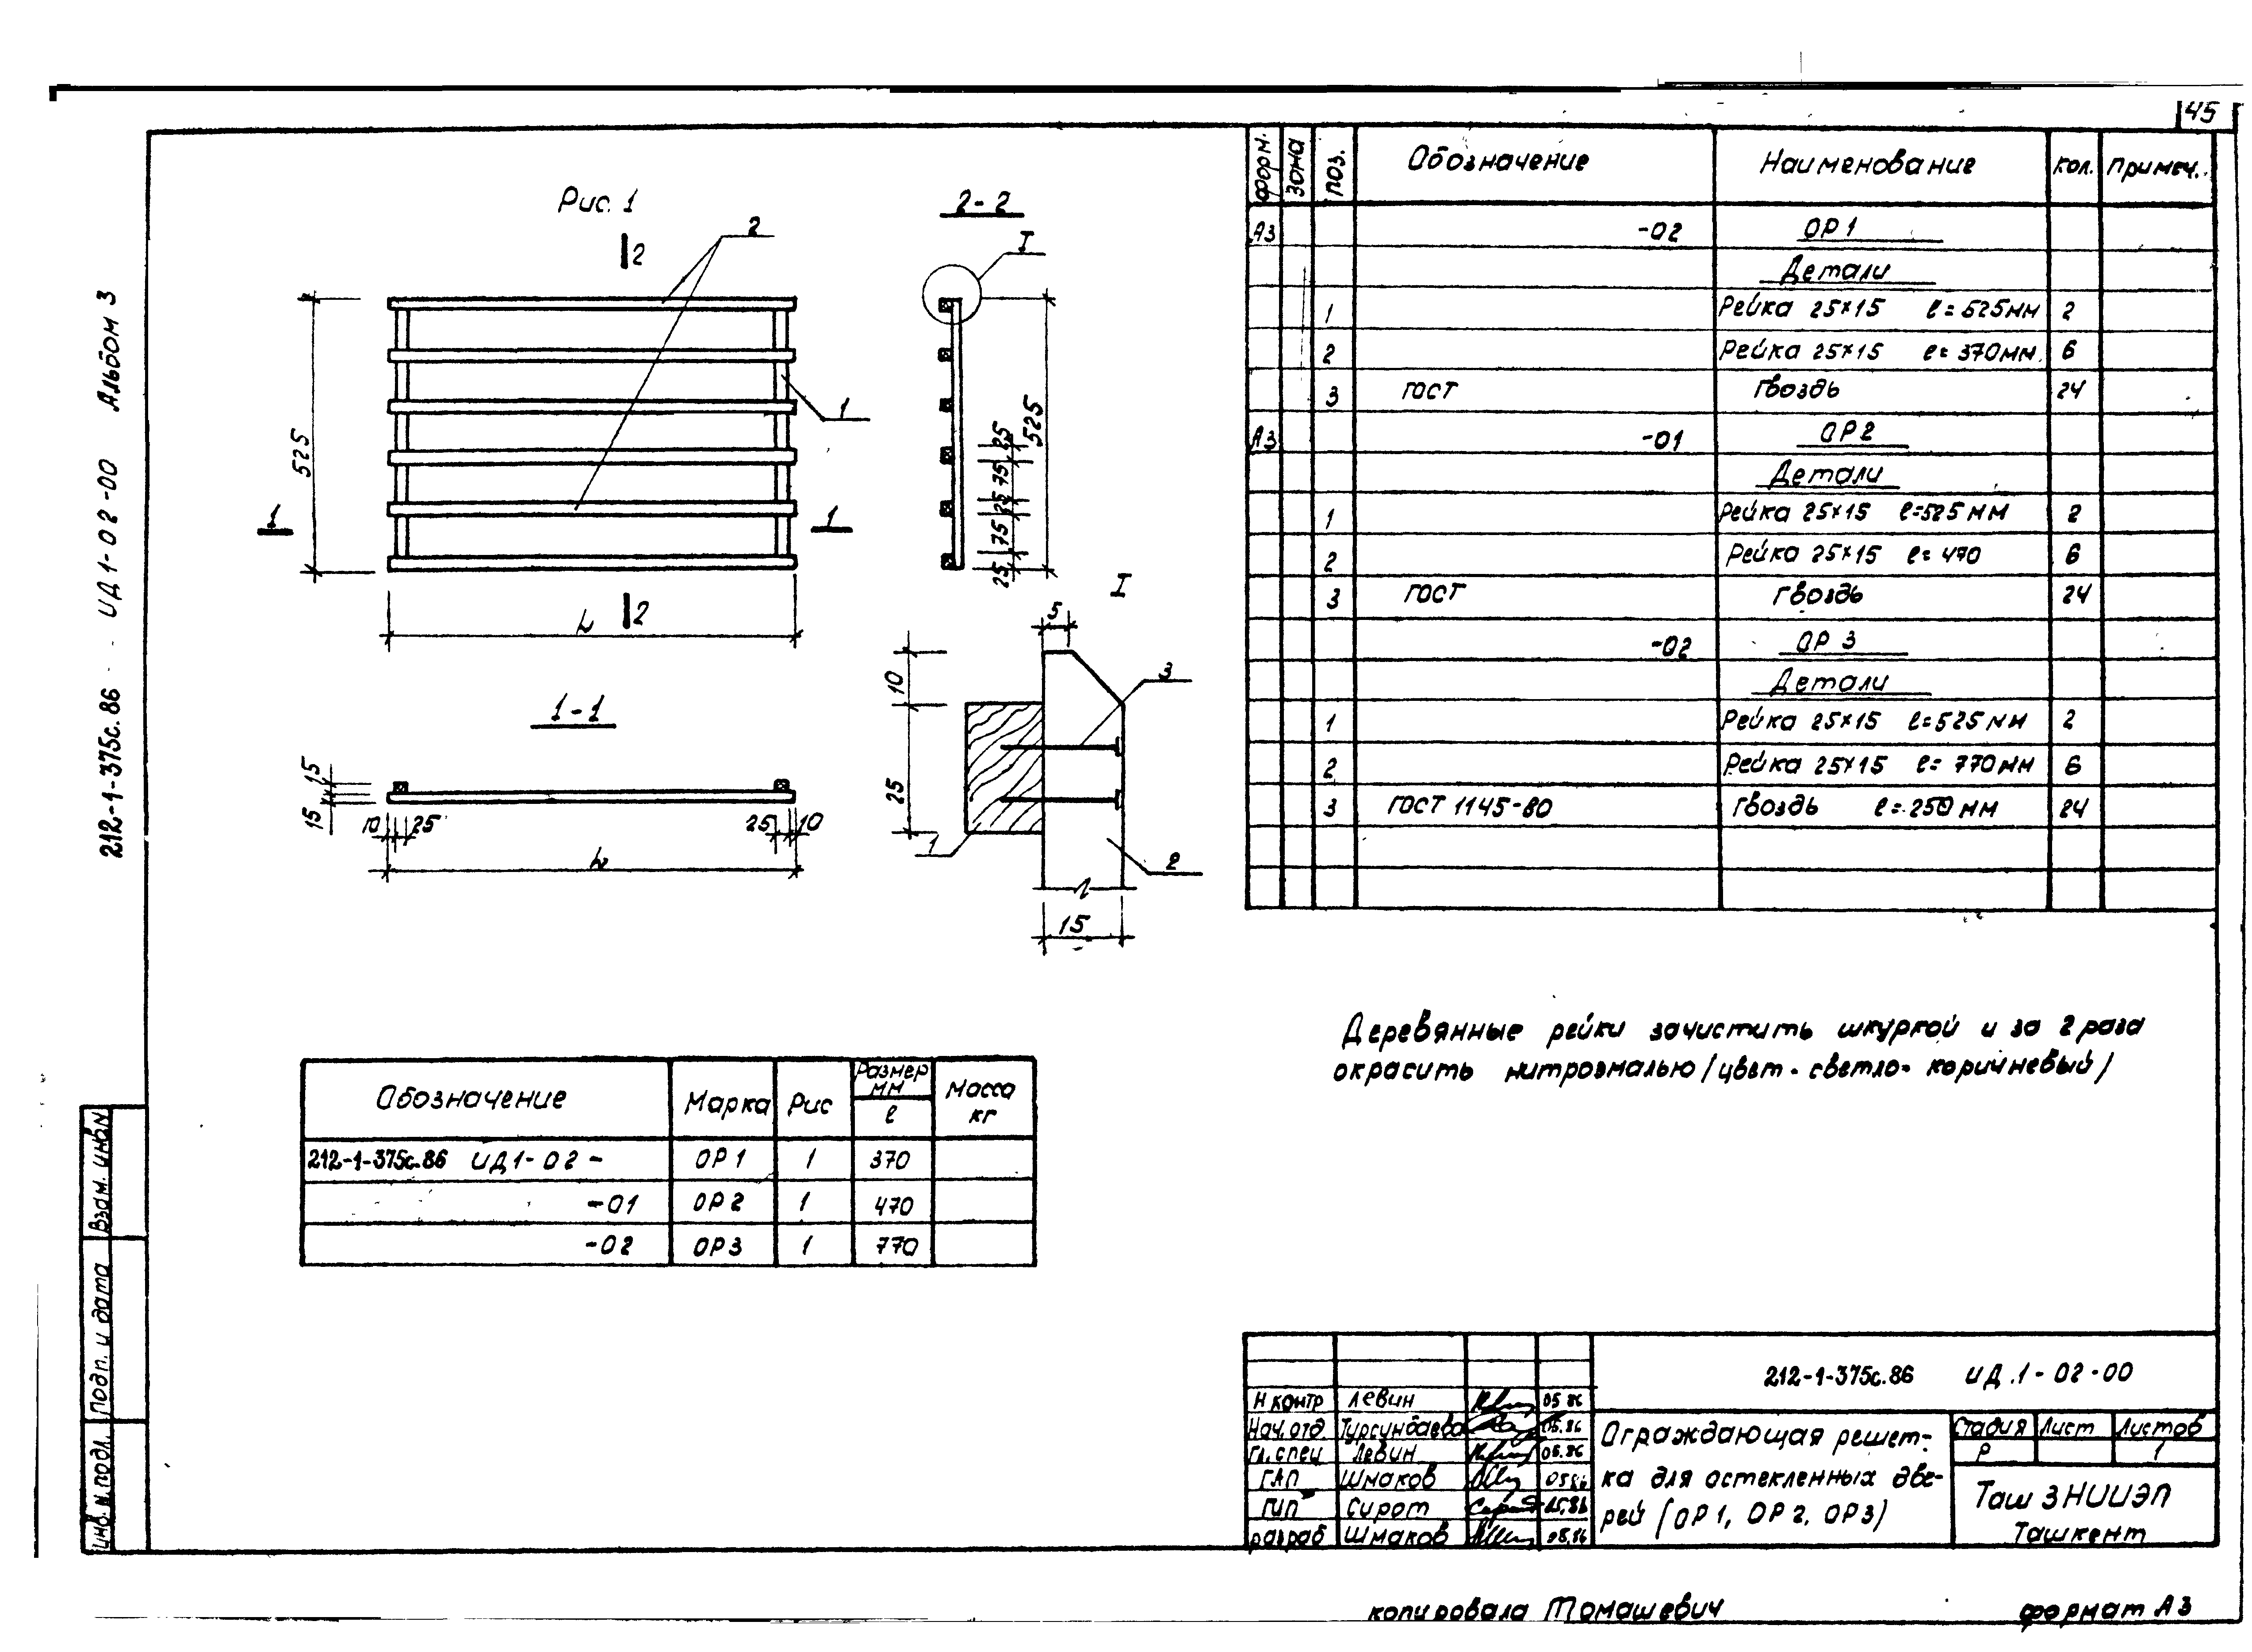 45
212-1-375с.86 ИД1-02-00 Альбом 3
Рис. 1
2-2
I
2
2
1
525
1
1
L
2
525
25
75
25
75
25
I
5
10
25
3
1
2
15
1-1
15
15
10
25
25
10
L
форм.
зона
поз.
Обозначение
Наименование
кол.
примеч.
А3 -02 ОР1
Детали
1 Рейка 25×15 ℓ=525мм 2
2 Рейка 25×15 ℓ=370мм. 6
3 ГОСТ гвоздь 24
А3 -01 ОР2
Детали
1 Рейка 25×15 ℓ=525мм 2
2 Рейка 25×15 ℓ=470 6
3 ГОСТ гвоздь 24
-02 ОР3
Детали
1 Рейка 25×15 ℓ=525мм 2
2 Рейка 25×15 ℓ=770мм 6
3 ГОСТ 1145-80 гвоздь ℓ=250мм 24
Деревянные рейки зачистить шкуркой и за 2 раза
окрасить нитроэмалью /цвет-светло-коричневый/
Обозначение Марка Рис Размер мм ℓ Масса кг
212-1-375с.86 ИД1-02- ОР1 1 370
-01 ОР2 1 470
-02 ОР3 1 770
Взам. инв N
Подп. и дата
Инв. N. подл.
212-1-375с.86 ИД.1-02-00
Н контр Левин 05.86
Нач. отд. Турсунбаева 05.86
Гл. спец Левин 05.86
ГАП Шмаков 05.86
ГИП Сирот 05.86
разраб Шмаков 05.86
Ограждающая решет-
ка для остекленных две-
рей (ОР1, ОР2, ОР3)
Стадия Лист Листов
Р 1
Таш ЗНИИЭП
Ташкент
копировала Томашевич
формат А3